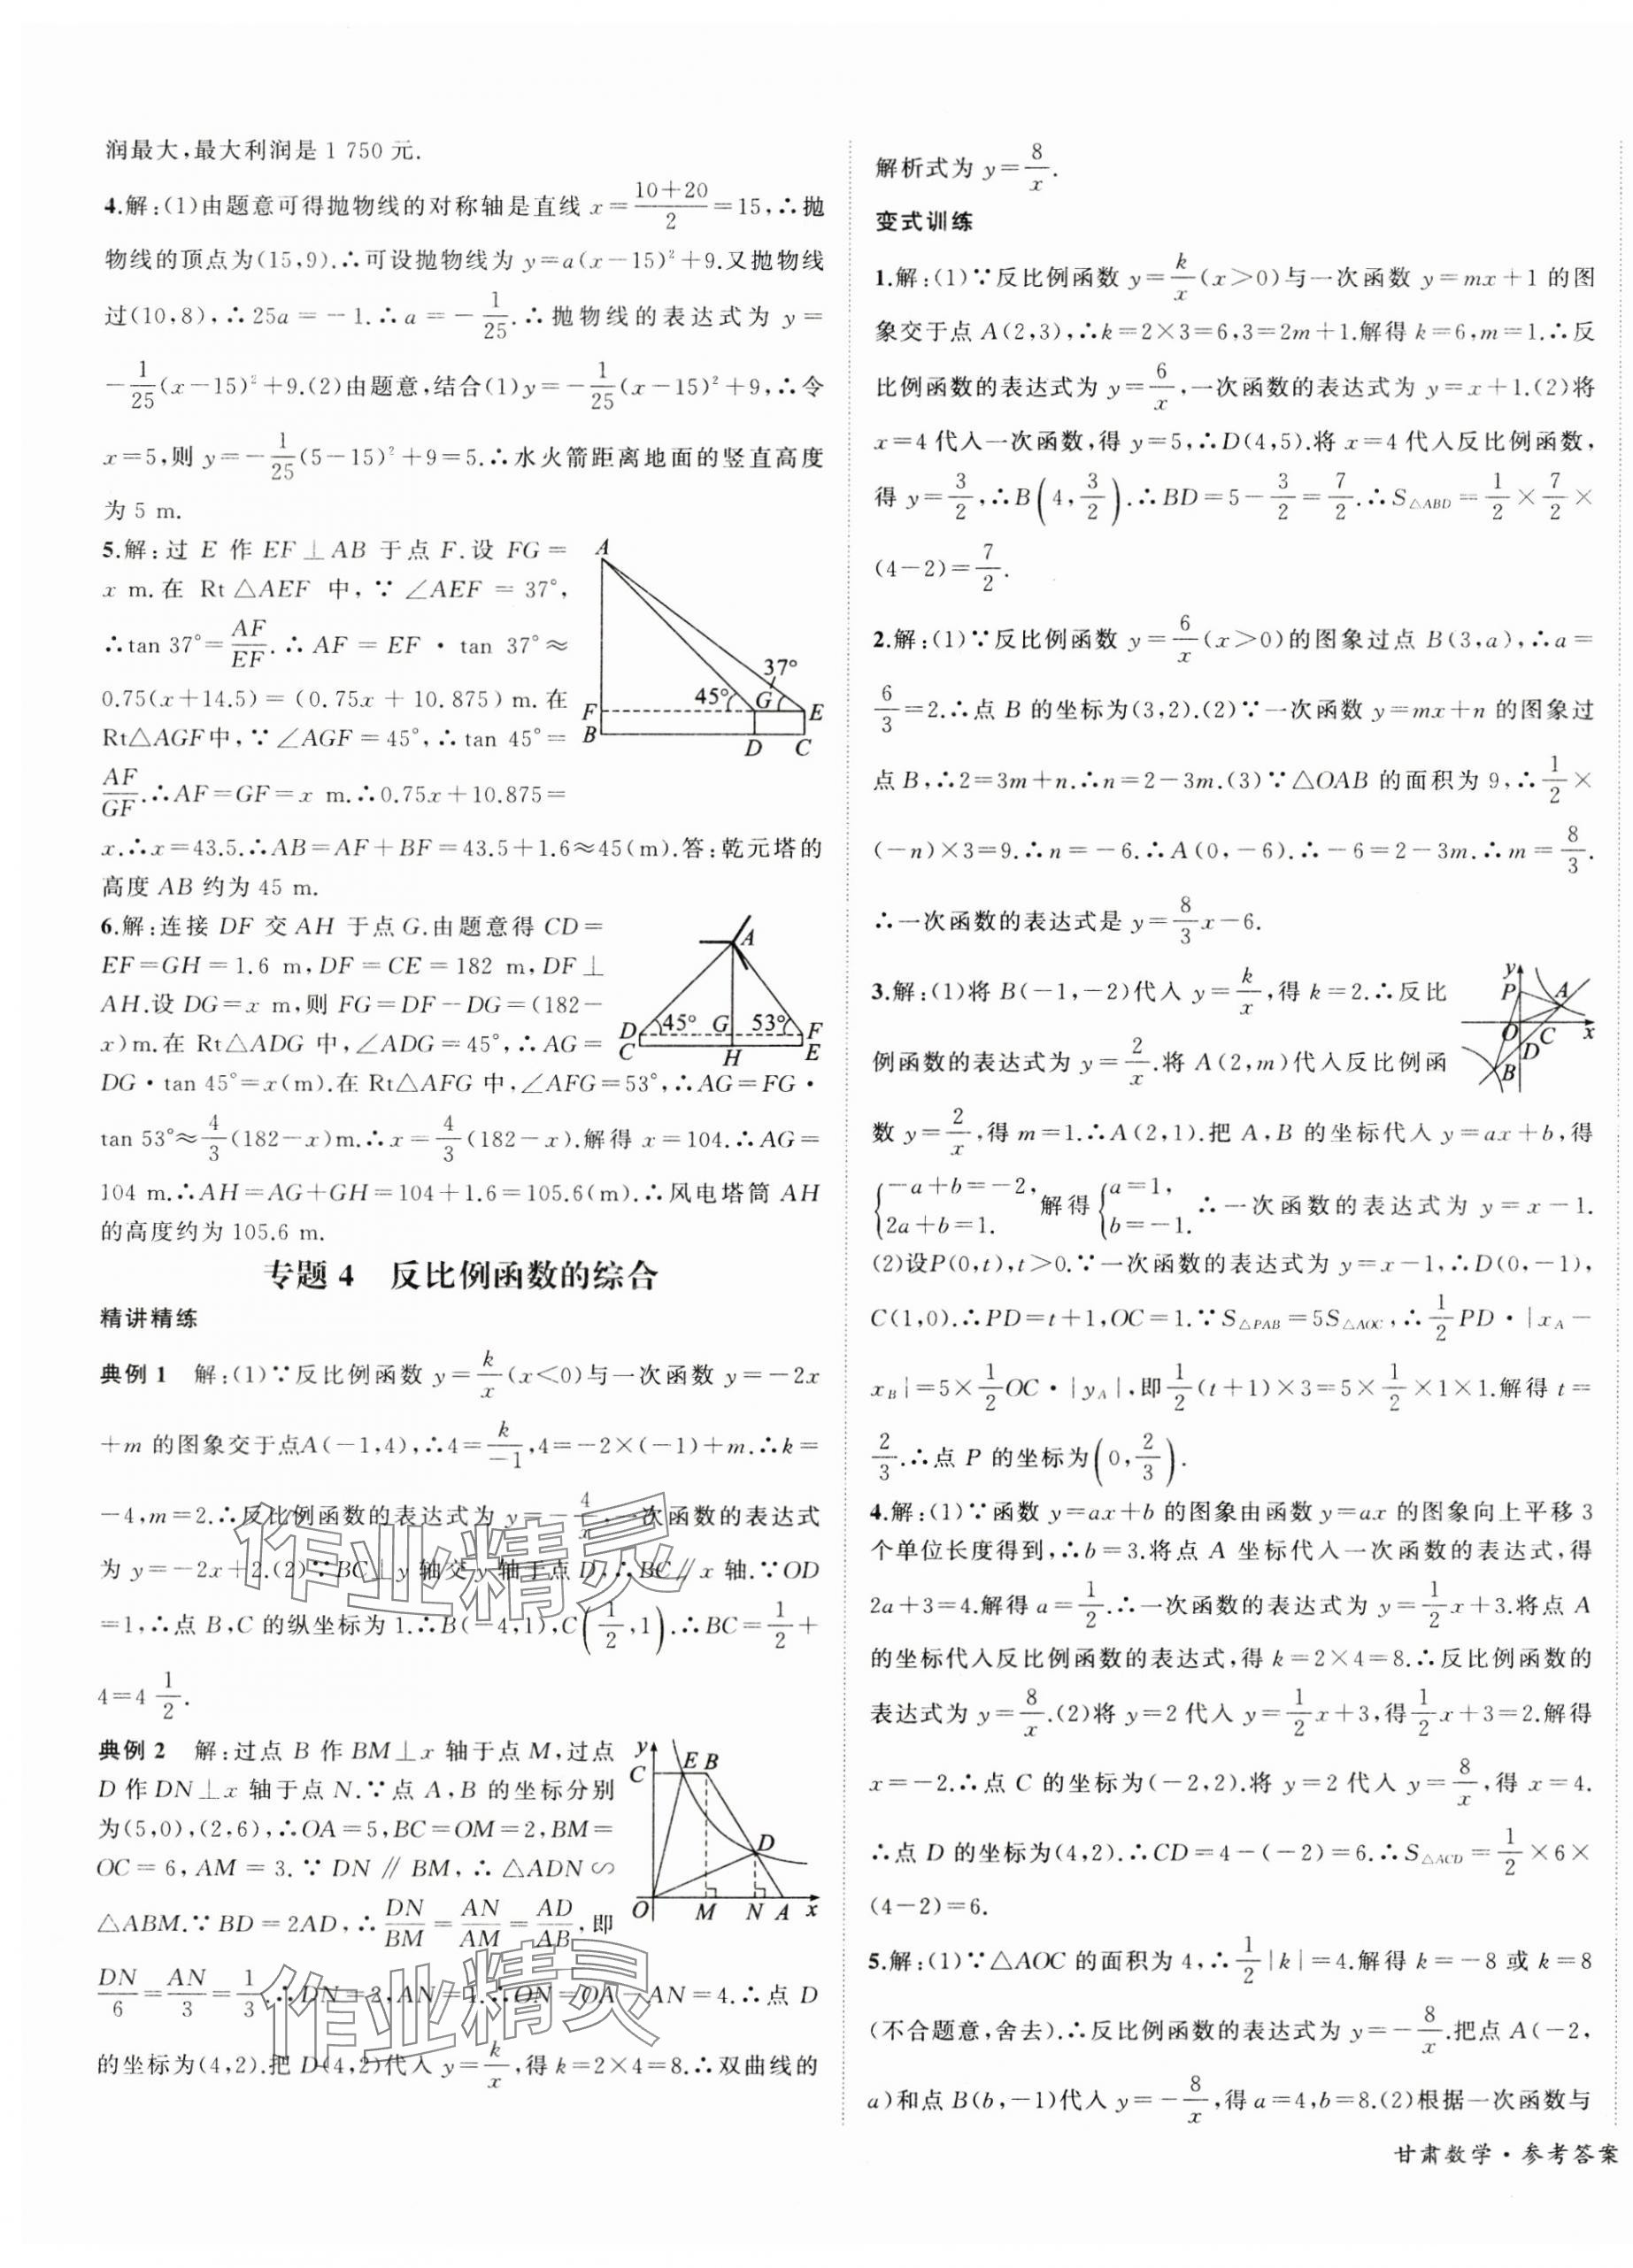 润最大,最大利润是1 750元.
4.解:(1)由题意可得抛物线的对称轴是直线 x=\frac{10+20}{2}=15,∴抛
物线的顶点为(15,9).∴可设抛物线为 y=a(x-15)²+9.又抛物线
过(10,8),∴25a=-1.∴a=-\frac{1}{25}.∴抛物线的表达式为 y=
-\frac{1}{25}(x-15)²+9.(2)由题意,结合(1)y=-\frac{1}{25}(x-15)²+9,∴令
x=5,则 y=-\frac{1}{25}(5-15)²+9=5.∴水火箭距离地面的竖直高度
为5 m.
5.解:过 E 作 EF⊥AB 于点 F.设 FG=
x m.在 Rt△AEF 中,∵∠AEF=37°,
∴tan 37°=\frac{AF}{EF}.∴AF=EF·tan 37°≈
0.75(x+14.5)=(0.75x+10.875)m.在
Rt△AGF中,∵∠AGF=45°,∴tan 45°=
\frac{AF}{GF}.∴AF=GF=x m.∴0.75x+10.875=
x.∴x=43.5.∴AB=AF+BF=43.5+1.6≈45(m).答:乾元塔的
高度 AB 约为 45 m.
A
37°
45°
F
G
E
B
D
C
6.解:连接 DF 交 AH 于点 G.由题意得 CD=
EF=GH=1.6 m,DF=CE=182 m,DF⊥
AH.设 DG=x m,则 FG=DF-DG=(182-
x)m.在 Rt△ADG 中,∠ADG=45°,∴AG=
DG·tan 45°=x(m).在Rt△AFG 中,∠AFG=53°,∴AG=FG·
tan 53°≈\frac{4}{3}(182-x)m.∴x=\frac{4}{3}(182-x).解得 x=104.∴AG=
104 m.∴AH=AG+GH=104+1.6=105.6(m).∴风电塔筒 AH
的高度约为 105.6 m.
A
D
45°
G
53°
F
C
H
E
专题4 反比例函数的综合
精讲精练
典例1 解:(1)∵反比例函数 y=\frac{k}{x}(x<0)与一次函数 y=-2x
+m 的图象交于点A(-1,4),∴4=\frac{k}{-1},4=-2×(-1)+m.∴k=
-4,m=2.∴反比例函数的表达式为 y=-\frac{4}{x},一次函数的表达式
为 y=-2x+2.(2)∵BC⊥y 轴交 y 轴于点 D,∴BC∥x 轴.∵OD
=1,∴点 B,C 的纵坐标为 1.∴B(-4,1),C(\frac{1}{2},1).∴BC=\frac{1}{2}+
4=4\frac{1}{2}.
典例2 解:过点 B 作 BM⊥x 轴于点 M,过点
D 作 DN⊥x 轴于点 N.∵点 A,B 的坐标分别
为(5,0),(2,6),∴OA=5,BC=OM=2,BM=
OC=6,AM=3.∵DN∥BM,∴△ADN∽
△ABM.∵BD=2AD,∴\frac{DN}{BM}=\frac{AN}{AM}=\frac{AD}{AB},即
\frac{DN}{6}=\frac{AN}{3}=\frac{1}{3}.∴DN=2,AN=1.∴ON=OA-AN=4.∴点 D
的坐标为(4,2).把 D(4,2)代入 y=\frac{k}{x},得 k=2×4=8.∴双曲线的
y
C
E
B
D
O
M
N
A
x
作业精灵
作业精灵
解析式为 y=\frac{8}{x}.
变式训练
1.解:(1)∵反比例函数 y=\frac{k}{x}(x>0)与一次函数 y=mx+1 的图
象交于点 A(2,3),∴k=2×3=6,3=2m+1.解得 k=6,m=1.∴反
比例函数的表达式为 y=\frac{6}{x},一次函数的表达式为 y=x+1.(2)将
x=4 代入一次函数,得 y=5,∴D(4,5).将 x=4 代入反比例函数,
得 y=\frac{3}{2},∴B(4,\frac{3}{2}).∴BD=5-\frac{3}{2}=\frac{7}{2}.∴S△ABD=\frac{1}{2}×\frac{7}{2}×
(4-2)=\frac{7}{2}.
2.解:(1)∵反比例函数 y=\frac{6}{x}(x>0)的图象过点 B(3,a),∴a=
\frac{6}{3}=2.∴点 B 的坐标为(3,2).(2)∵一次函数 y=mx+n 的图象过
点 B,∴2=3m+n.∴n=2-3m.(3)∵△OAB 的面积为 9,∴\frac{1}{2}×
(-n)×3=9.∴n=-6.∴A(0,-6).∴-6=2-3m.∴m=\frac{8}{3}.
∴一次函数的表达式是 y=\frac{8}{3}x-6.
3.解:(1)将 B(-1,-2)代入 y=\frac{k}{x},得 k=2.∴反比
例函数的表达式为 y=\frac{2}{x}.将 A(2,m)代入反比例函
数 y=\frac{2}{x},得 m=1.∴A(2,1).把 A,B 的坐标代入 y=ax+b,得
{-a+b=-2, 2a+b=1. 解得 {a=1, b=-1. ∴一次函数的表达式为 y=x-1.
(2)设P(0,t),t>0.∵一次函数的表达式为 y=x-1,∴D(0,-1),
C(1,0).∴PD=t+1,OC=1.∵S△PAB=5S△AOC,∴\frac{1}{2}PD·|x_A-
x_B|=5×\frac{1}{2}OC·|y_A|,即\frac{1}{2}(t+1)×3=5×\frac{1}{2}×1×1.解得 t=
\frac{2}{3}.∴点 P 的坐标为(0,\frac{2}{3}).
y
P
A
O
C
x
D
B
4.解:(1)∵函数 y=ax+b 的图象由函数 y=ax 的图象向上平移 3
个单位长度得到,∴b=3.将点 A 坐标代入一次函数的表达式,得
2a+3=4.解得 a=\frac{1}{2}.∴一次函数的表达式为 y=\frac{1}{2}x+3.将点 A
的坐标代入反比例函数的表达式,得 k=2×4=8.∴反比例函数的
表达式为 y=\frac{8}{x}.(2)将 y=2 代入 y=\frac{1}{2}x+3,得\frac{1}{2}x+3=2.解得
x=-2.∴点 C 的坐标为(-2,2).将 y=2 代入 y=\frac{8}{x},得 x=4.
∴点 D 的坐标为(4,2).∴CD=4-(-2)=6.∴S△ACD=\frac{1}{2}×6×
(4-2)=6.
5.解:(1)∵△AOC 的面积为 4,∴\frac{1}{2}|k|=4.解得 k=-8 或 k=8
(不合题意,舍去).∴反比例函数的表达式为 y=-\frac{8}{x}.把点 A(-2,
a)和点 B(b,-1)代入 y=-\frac{8}{x},得 a=4,b=8.(2)根据一次函数与
甘肃数学·参考答案